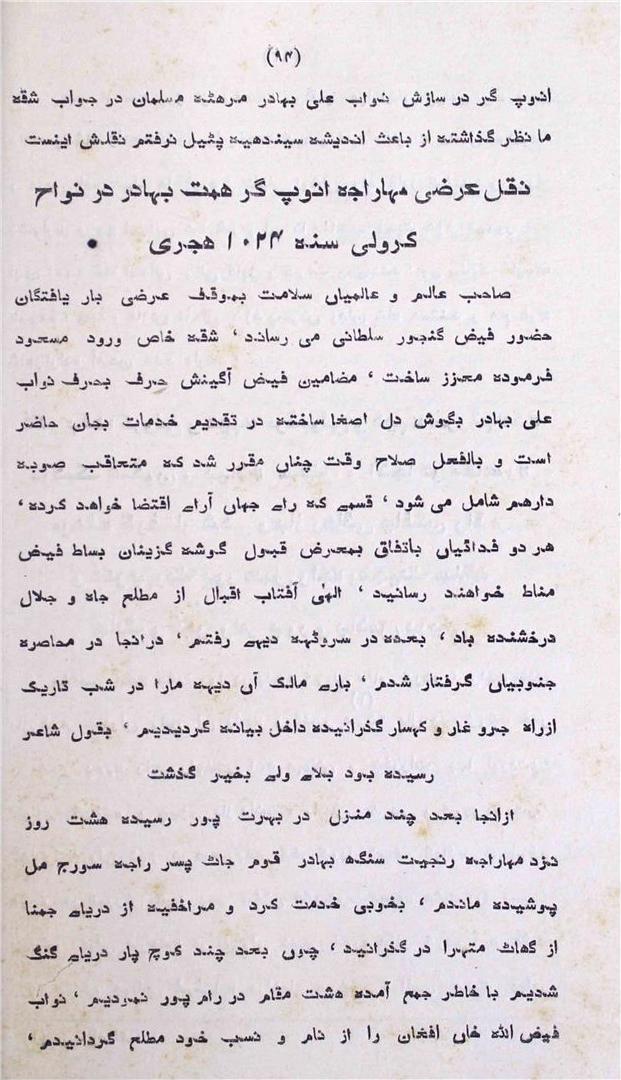 (۹۴)
انوپ گر در سازش نواب علی بهادر مرهٹه مسلمان در جواب شقه
ما نظر گذاشته از باعث اندیشه سیندهیه پٹیل نرفتم نقلش اینست
نقل عرضی مهاراجه انوپ گر همت بهادر در نواح
کرولی سنه ۱۰۲۴ هجری •
صاحب عالم و عالمیاں سلامت بموقف عرضی بار یافتگان
حضور فیض گنجور سلطانی می رساند، شقه خاص ورود مسعود
فرموده معزز ساخت، مضامین فیض آگینش حرف بحرف نواب
علی بهادر بگوش دل اصغا ساخته در تقدیم خدمات بجان حاضر
است و بالفعل صلاح وقت چناں مقرر شد که متعاقب صوبه
دارهم شامل می شود، قسمے که راے جهاں آراے اقتضا خواهد کرده،
هر دو فدائیاں باتفاق بمعرض قبول گوشه گزینان بساط فیض
مناط خواهند رسانید، الهی آفتاب اقبال از مطلع جاه و جلال
درخشنده باد، بعده در سروٹهه دیهے رفتم، درانجا در محاصره
جنوبیاں گرفتار شدم، بارے مالک آں دیهه مارا در شب تاریک
ازراه جرو غار و کهسار گذرانیده داخل بیانه گردیدیم، بقول شاعر
رسیده بود بلاے ولے بخیر گذشت
ازانجا بعد چند منزل در بهرت پور رسیده هشت روز
نزد مهاراجه رنجیت سنگهه بهادر قوم جاٹ پسر راجه سورج مل
پوشیده ماندم، بخوبی خدمت کرد و مراخفیه از دریاے جمنا
از گهاٹ متهرا در گذرانید، چوں بعد چند کوچ پار دریاے گنگ
شدیم با خاطر جمع آمده هشت مقام در رام پور نمودیم، نواب
فیض الله خاں افغان را از نام و نسب خود مطلع گردانیدم،